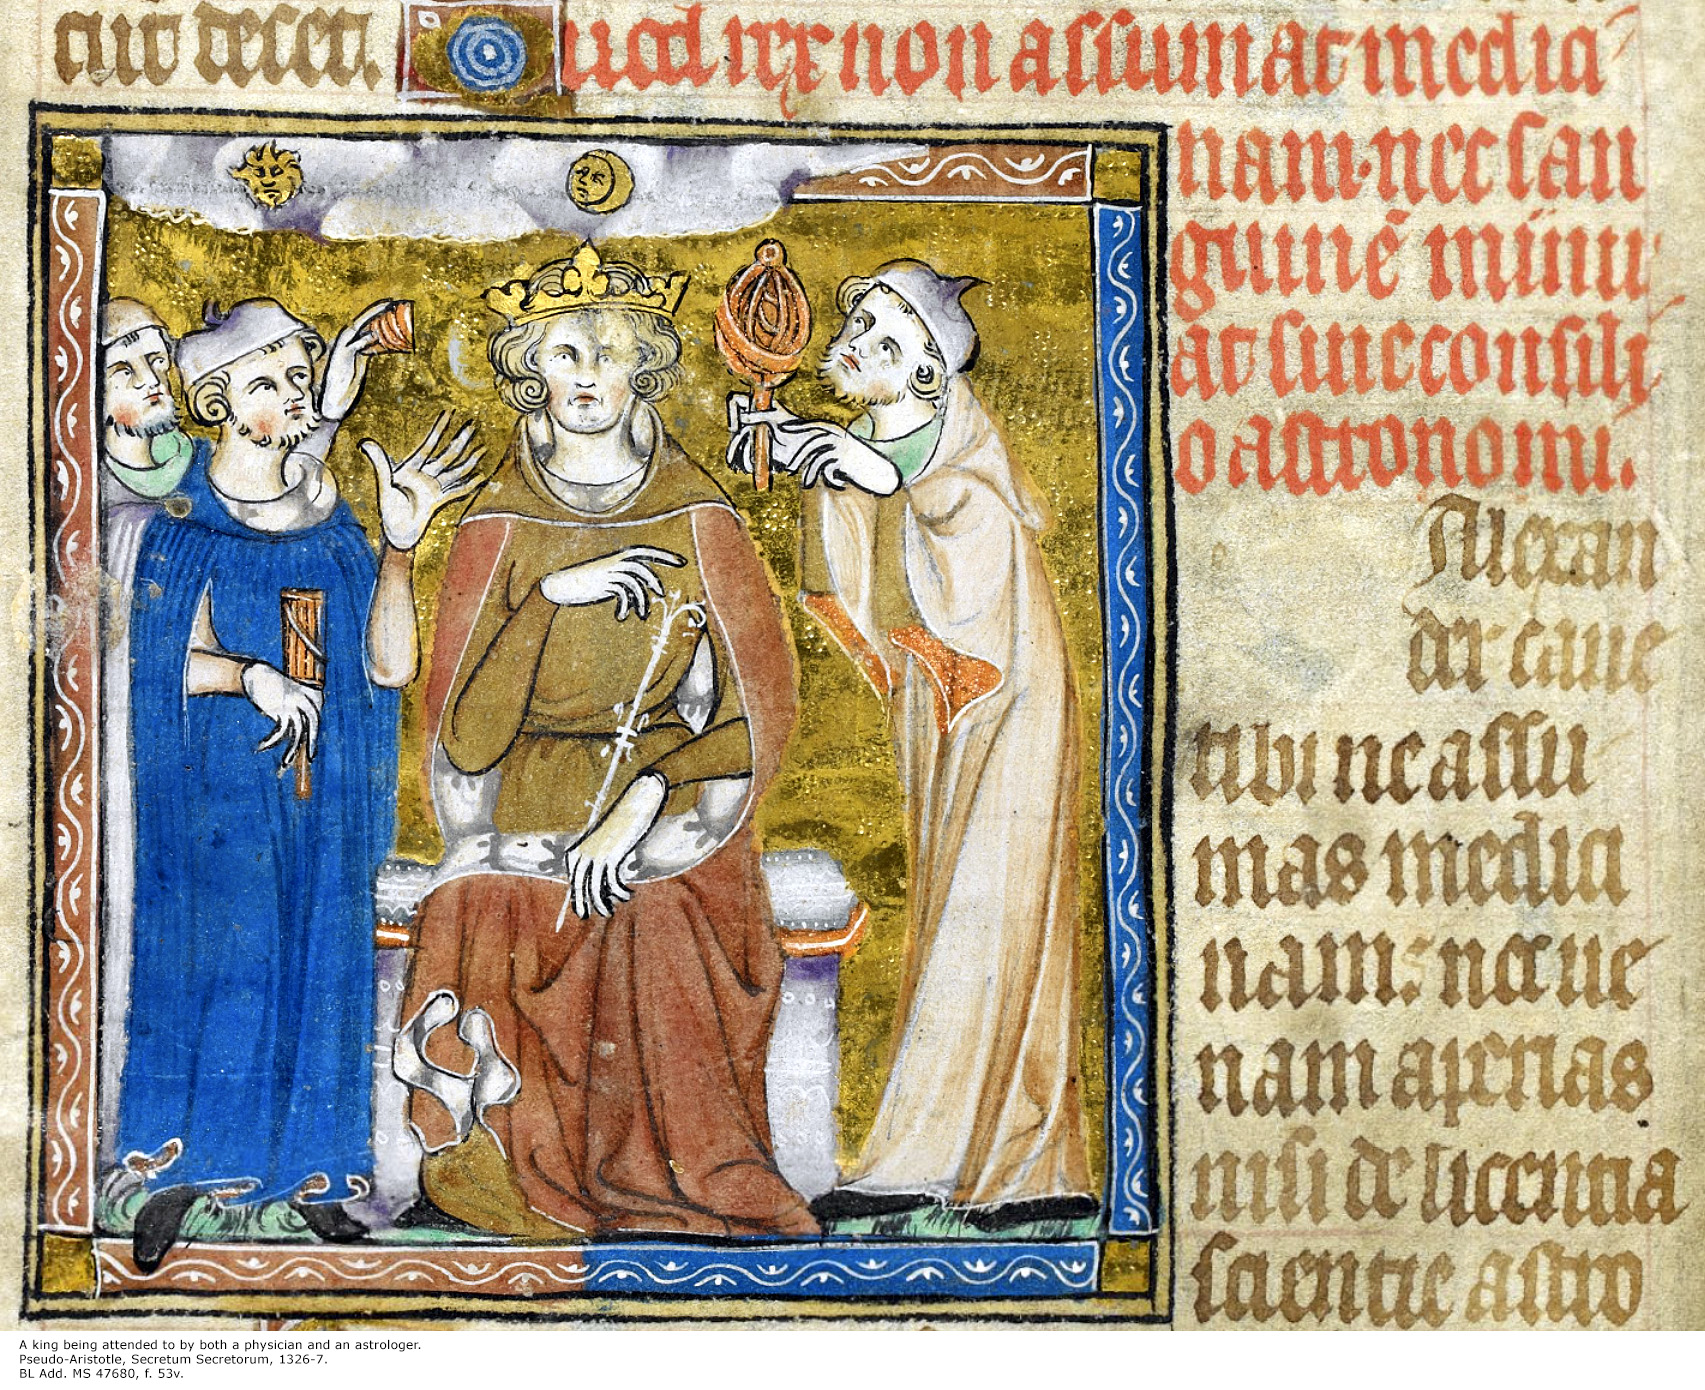 aut decen. Quod rex non assumat medici
nam. nec san
guinē minu
at sine consili
o astronomi.
Alexan
der caue
tibi ne assu
mas medici
nam: nec ue
nam aperias
nisi de licentia
scientie astro
A king being attended to by both a physician and an astrologer.
Pseudo-Aristotle, Secretum Secretorum, 1326-7.
BL Add. MS 47680, f. 53v.